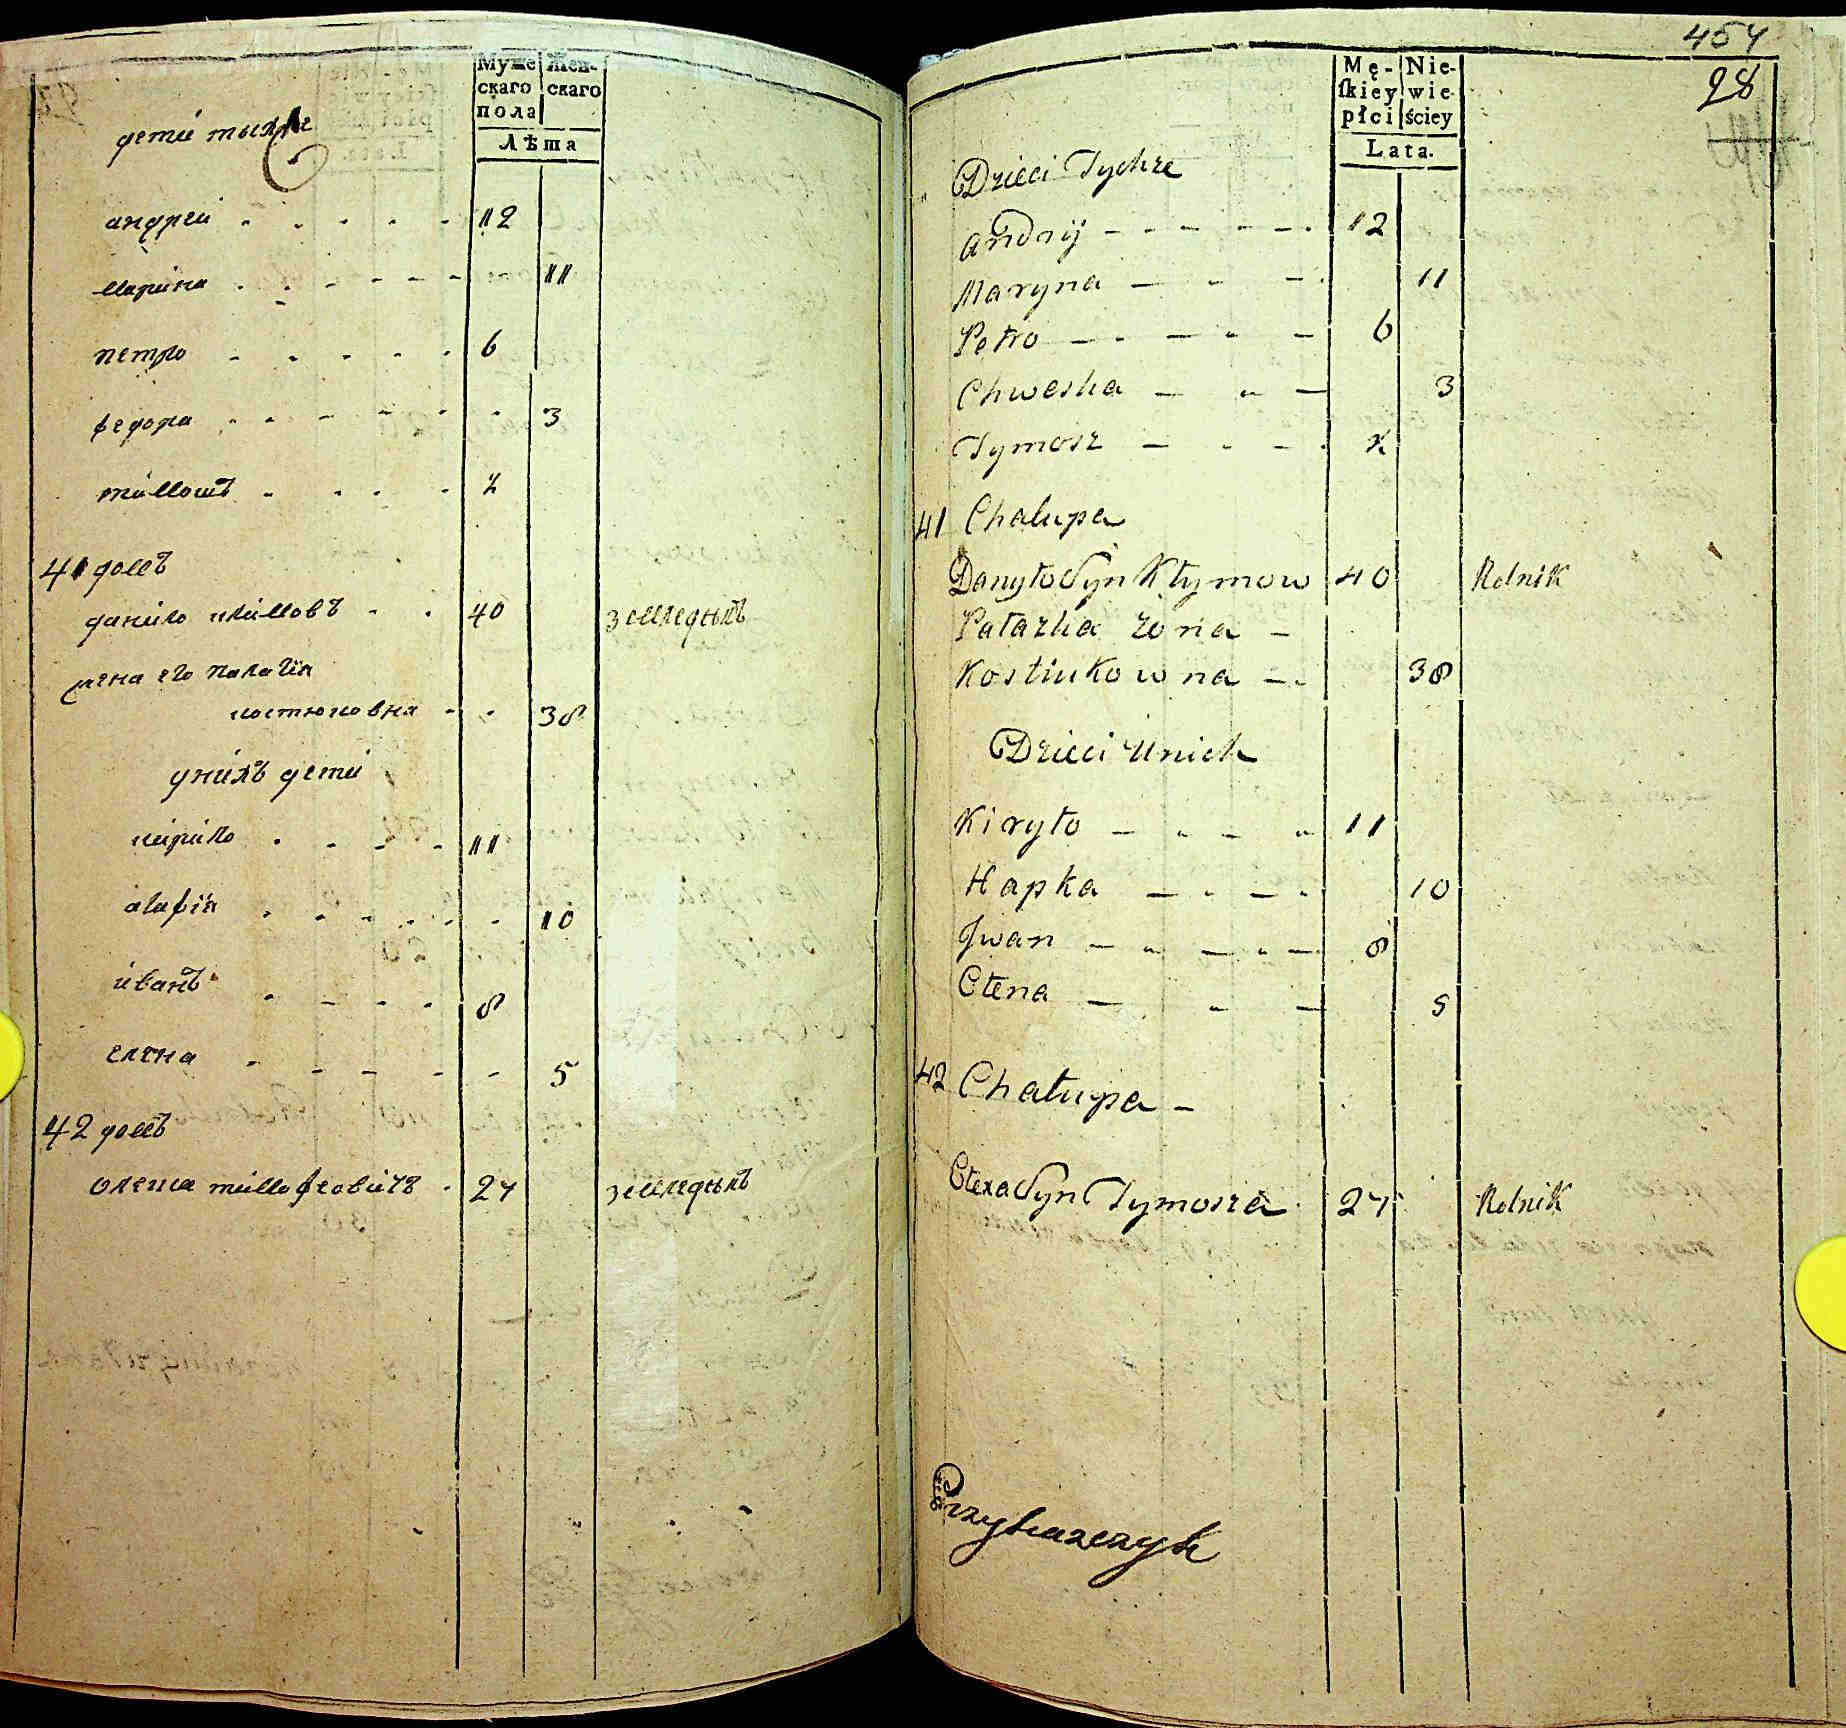 Муже
скаго
пола
Жен-
скаго
Лѣта
дети тыхже
андрей 12
марина 11
петро 6
федора 3
тимошъ 2
41 домъ
данило климовъ 40 земледѣлъ
жена его палагія
костюковна 38
унихъ дети
кирило 11
агафія 10
иванъ 8
елена 5
42 домъ
олекса тимофеовичъ 27 земледѣлъ
454
28
Mę-
ſkiey
płci
Nie-
wie-
ściey
Lata.
Dzieci Tychże
Andrij 12
Maryna 11
Petro 6
Chweska 3
Tymosz 2
41 Chalupa
Danyło Syn Kłymow 40 Rolnik
Pałazka zona
Kostiukowna 38
Dzieci Unich
Kiryło 11
Hapka 10
Jwan 8
Ołena 5
42 Chałupa
Olexa Syn Tymosza 27 Rolnik